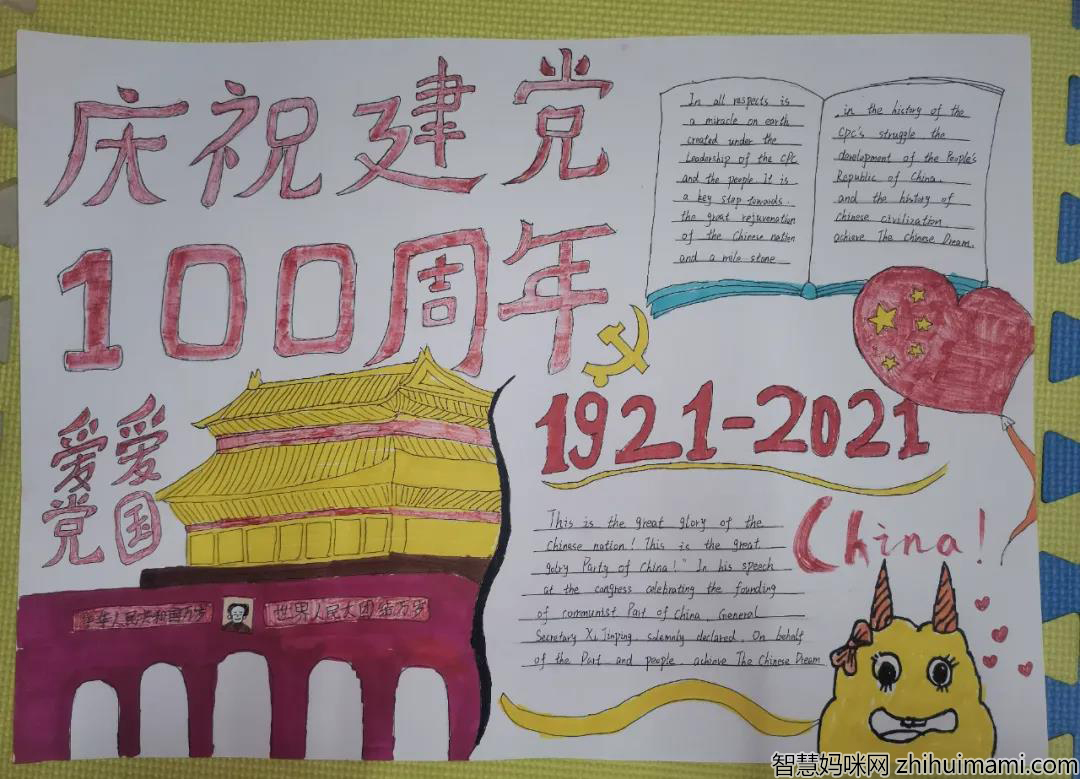 庆祝建党
100周年
爱 爱
党 国
In all respects is
a miracle on earth
created under the
Leadership of the CPC
and the people. It is
a key step towards.
the great rejuvenation
of the Chinese nation
and a mile stone
in the history of the
CPC's struggle the
development of the People's
Republic of China.
and the history of
chinese civilization
achieve The Chinese Dream.
1921-2021
China!
This is the great glory of the
chinese nation! This is the great
golry Party of China!" In his speech
at the congress celebrating the founding
of communist Part of China, General
Secretary Xi Jinping solemnly declared. On behalf
of the Part and people achieve The Chinese Dream
中华人民共和国万岁
世界人民大团结万岁
智慧妈咪网 zhihuimami.com